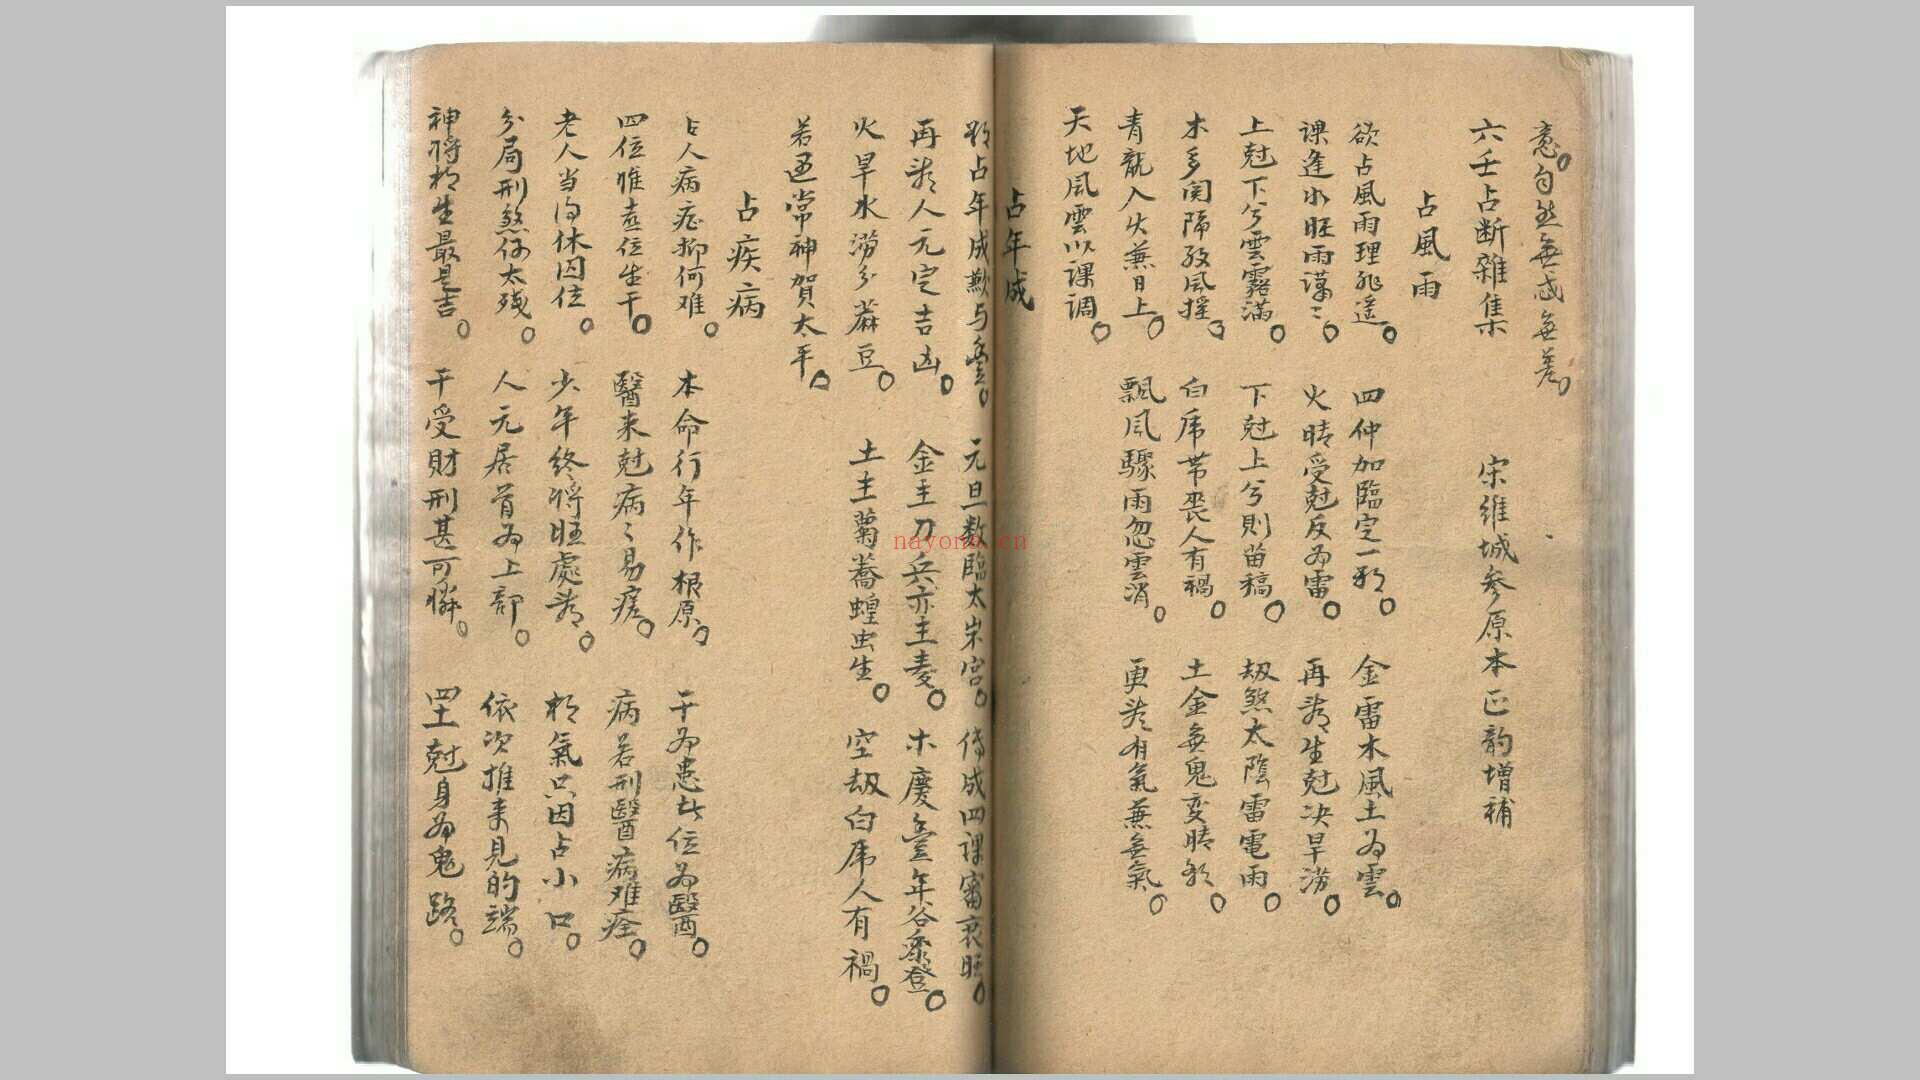 意。自然無惑無差。
六壬占断雜集 宋維城参原本正韵增補
占風雨
欲占風雨理非遥。四仲加臨定一爻。金雷木風土為雲。
課逢水旺雨謀〻。火晴受尅反為雷。再看生尅决旱涝。
上尅下兮雲霧满。下尅上兮則苗稿。劫煞太陰雷電雨。
木多関隔發風摇。白虎带喪人有禍。土金無鬼变晴
青龍入火兼日上。飄風驟雨忽雲消。更类有氣兼無氣。
天地風雲以課调。
占年成
占年成歉与豊。元旦数臨太岁宫。傳成四課審衰旺。
再类人元定吉凶。金主刀兵亦主麦。木慶豊年谷黍登。
火旱水涝分蔴豆。土主蕎蝗虫生。空劫白虎人有禍。
若逥常神賀太平。
占疾病
占人病症抑何难。本命行年作根原。干為患此位為醫。
四位惟在位生干。醫来尅病〻易瘥。病若刑醫病难痊。
老人当沟休囚位。少年终将旺處看。氣只因占小口。
分局刑煞伤太残。人元居首為上部。依次推来見的端。
神将相生最是吉。干受財刑甚可憐。四土尅身為鬼路。
nayona.cn